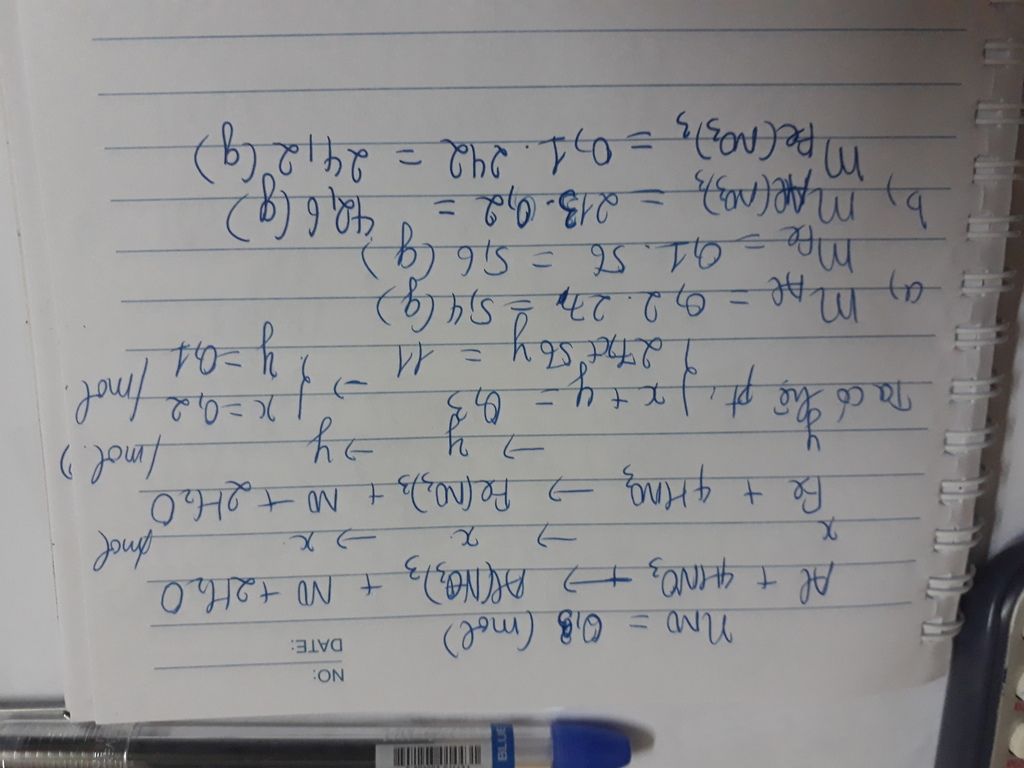 NO:
DATE:
nNO = 0,3 (mol)
Al + 4HNO3 → Al(NO3)3 + NO + 2H2O
x → x → x /mol
Fe + 4HNO3 → Fe(NO3)3 + NO + 2H2O
y → y → y /mol.)
Ta có hệ pt, { x + y = 0,3 → { x = 0,2 /mol.
{ 27x 56y = 11 { y = 0,1
a) mAl = 0,2 . 27 = 5,4 (g)
mFe = 0,1 . 56 = 5,6 (g)
b) mAl(NO3)3 = 213 . 0,2 = 42,6 (g)
mFe(NO3)3 = 0,1 . 242 = 24,2 (g)
BLUE